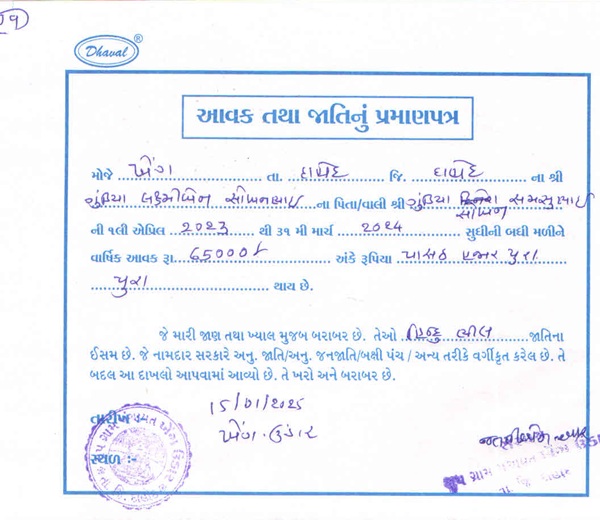 Dhaval
આવક તથા જાતિનું પ્રમાણપત્ર
મોજે ખેંગ તા. દાહોદ જિ. દાહોદ ના શ્રી
ગુંડિયા લક્ષ્મીબેન સોબનભાઈ ના પિતા/વાલી શ્રી ગુંડિયા સમસુભાઈ
સોબન
ની ૧લી એપ્રિલ ૨૦૨૩ થી ૩૧ મી માર્ચ ૨૦૨૪ સુધીની બધી મળીને
વાર્ષિક આવક રૂા. 65000 અંકે રૂપિયા પાસઠ હજાર પુરા
પુરા થાય છે.
જે મારી જાણ તથા ખ્યાલ મુજબ બરાબર છે. તેઓ હિન્દુ ભીલ જાતિના
ઈસમ છે. જે નામદાર સરકારે અનુ. જાતિ/અનુ. જનજાતિ/બક્ષી પંચ / અન્ય તરીકે વર્ગીકૃત કરેલ છે. તે
બદલ આ દાખલો આપવામાં આવ્યો છે. તે ખરો અને બરાબર છે.
તારીખ :- 15/01/2025
સ્થળ :- ખેંગ